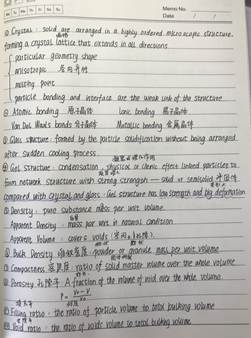 Memo No.
Date
① Crystals : solid are arranged in a highly ordered microscopic structure.
晶体
forming a crystal lattice that extends in all directions
particular geometry shape
anisotropic 各向异性
melting point
particle bonding and interface are the weak link of the structure
Atomic bonding 原子晶体 Ionic bonding 离子晶体
Van Del Waals bonds 分子晶体 Metallic bonding 金属晶体
③ Glass structure : formed by the particle solidification without being arranged
after sudden cooling process
④ Gel structure : condensation , physical or chemic effect linked particles to
form network structure with strong strength — solid or semisolid 半固体
compared with crystal and glass. Gel structure has low strength and big deformation
Density : pure substance mass per unit volume
Apparent Density : mass per unit in natural condition
Apparent Volume : covers voids
Bulk Density 堆积密度 powder or granule mass per unit volume
Compactness 密实度 : ratio of solid matter volume over the whole volume
Density 孔隙率 A fraction of the volume of void over the whole volume.
Filling ratio - the ratio of particle volume to total bulking volume
Void ratio - the ratio of voids volume to total bulking volume